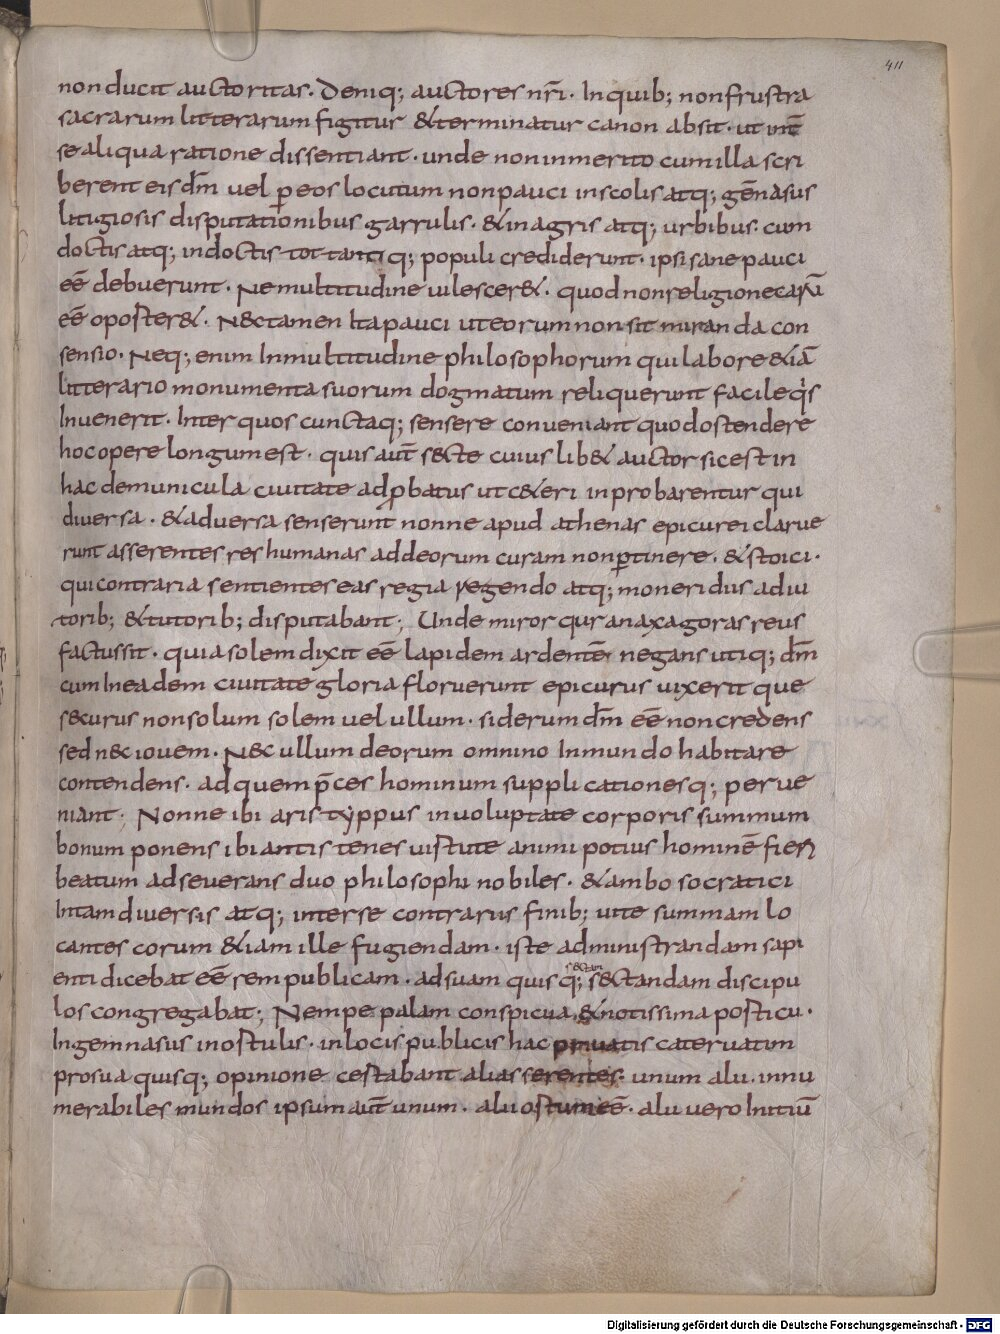 411
non ducit auctoritas. Deniq; auctores nr̄i. In quib; non frustra
sacrarum litterarum figitur & terminatur canon absit. ut int̄
se aliqua ratione dissentiant. unde non inmerito cum illa scri
berent eis dm̄ uel ꝑ eos locutum non pauci in scolis atq; gēnasus
litigiosis disputationibus garrulis. & in agris atq; urbibus. cum
doctis atq; indoctis tot tantiq; populi crediderunt. ipsi sane pauci
eē debuerunt. Ne multitudine uilescer&. quod non religione carū
eē oposter&. N&c tamen Ita pauci ut eorum non sit miranda con
sensio. Neq; enim In multitudine philosophorum qui labore &iā
litterario monumenta suorum dogmatum reliquerunt facile q̇s
Inuenerit. Inter quos cunctaq; sensere conueniant quod ostendere
hoc opere longum est. quis aut̄ s&cte cuius lib& auctor sic est in
hac demunicula ciuitate adꝓbatus ut c&eri inprobarentur qui
diuersa. & aduersa senserunt nonne apud athenas epicurei clarue
runt asserentes res humanas ad deorum curam non ꝑtinere. & stoici.
qui contraria sentientes eas regia regendo atq; moneri dus adiu
torib; & tutorib; disputabant; Unde miror qur anaxagoras reus
factus sit. quia solem dixit eē lapidem ardentē negans utiq; dm̄
cum In eadem ciuitate gloria floruerunt epicurus uixerit que
s&curus non solum solem uel ullum. siderum dm̄ eē non credens
sed n&c iouem. N&c ullum deorum omnino In mundo habitare
contendens. ad quem p̄ces hominum supplicationesq; perue
niant; Nonne ibi aristyppus in uoluptate corporis summum
bonum ponens ibi antistenes uistute animi potius hominē fieri
beatum adseuerans duo philosophi nobiles. & ambo socratici
In tam diuersis atq; inter se contrarus finib; uite summam lo
cantes corum &iam ille fugiendam. iste administrandam sapi
enti dicebat eē rem publicam. ad suam quisq; s&ctandam discipu
s&ctam
los congregabat; Nempe palam conspicua & notissima posticu.
In gemnasus inostulis. in locis publicis hac priuatis cateruatim
pro sua quisq; opinione cestabant alias serentes. unum alii. innu
merabiles mundos ipsum aut̄ unum. alii ostum eē. alii uero Initiū
Digitalisierung gefördert durch die Deutsche Forschungsgemeinschaft - DFG